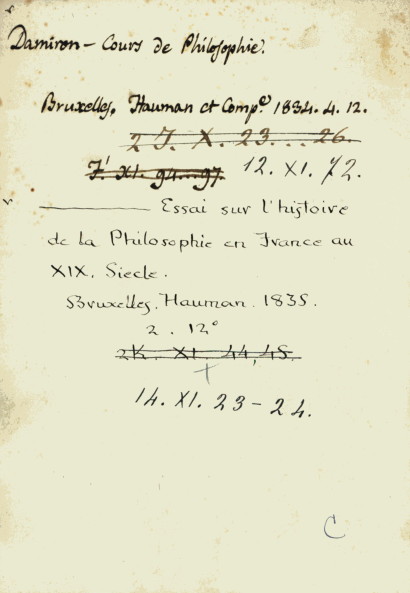 Damiron - Cours de Philosophie.
Bruxelles, Hauman et Comp.e 1834. 4. 12.
2 I. X. 23...26.
F.' XI. 94...97. 12. XI. 72.
Essai sur l'histoire
de la Philosophie en France au
XIX. Siecle.
Bruxelles. Hauman. 1835.
2. 12°
2K. XI 44,45.
14. XI. 23-24.
C